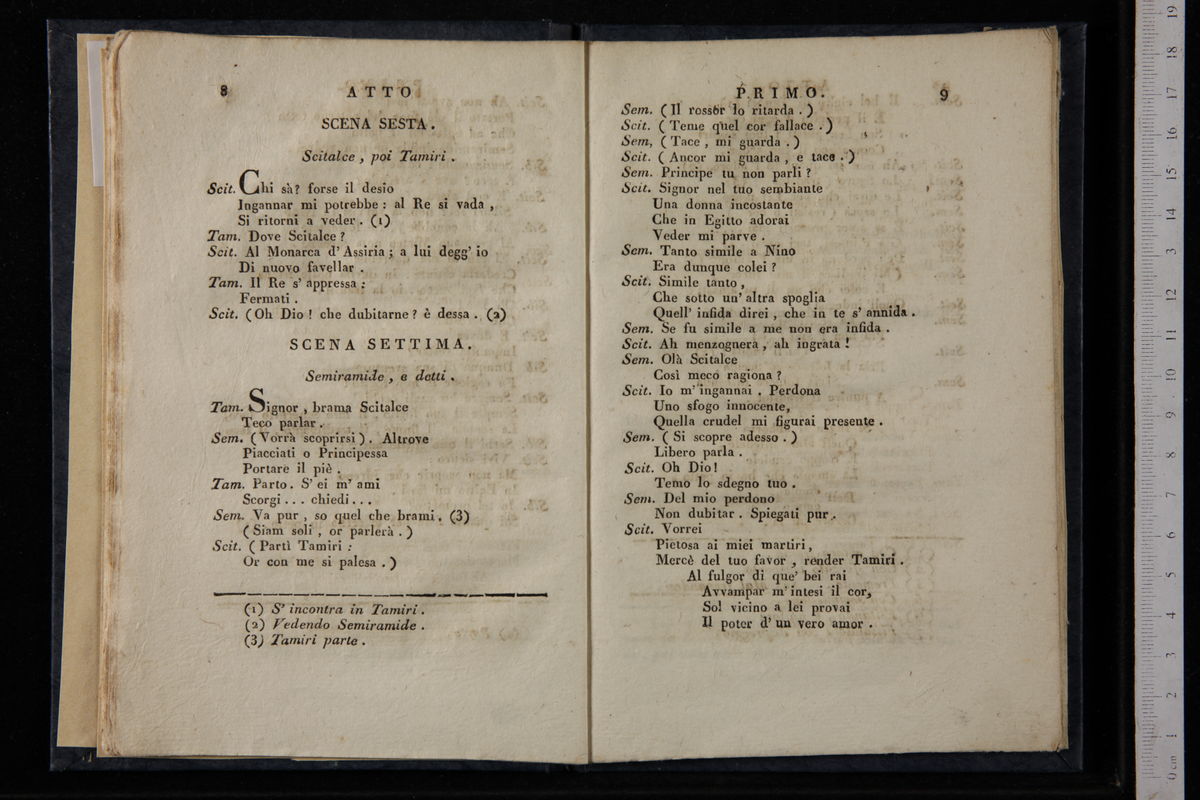 8 ATTO
SCENA SESTA.
Scitalce, poi Tamiri.
Scit. Chi sà? forse il desio
Ingannar mi potrebbe: al Re si vada,
Si ritorni a veder. (1)
Tam. Dove Scitalce?
Scit. Al Monarca d'Assiria; a lui degg'io
Di nuovo favellar.
Tam. Il Re s'appressa:
Fermati.
Scit. (Oh Dio! che dubitarne? è dessa. (2)
SCENA SETTIMA.
Semiramide, e detti.
Tam. Signor, brama Scitalce
Teco parlar.
Sem. (Vorrà scoprirsi). Altrove
Piacciati o Principessa
Portare il piè.
Tam. Parto. S'ei m'ami
Scorgi... chiedi...
Sem. Va pur, so quel che brami. (3)
(Siam soli, or parlerà.)
Scit. (Partì Tamiri:
Or con me si palesa.)
(1) S'incontra in Tamiri.
(2) Vedendo Semiramide.
(3) Tamiri parte.
PRIMO. 9
Sem. (Il rossòr lo ritarda.)
Scit. (Teme quel cor fallace.)
Sem, (Tace, mi guarda.)
Scit. (Ancor mi guarda, e tace.)
Sem. Principe tu non parli?
Scit. Signor nel tuo sembiante
Una donna incostante
Che in Egitto adorai
Veder mi parve.
Sem. Tanto simile a Nino
Era dunque colei?
Scit. Simile tanto,
Che sotto un'altra spoglia
Quell'infida direi, che in te s'annida.
Sem. Se fu simile a me non era infida.
Scit. Ah menzognera, ah ingrata!
Sem. Olà Scitalce
Così meco ragiona?
Scit. Io m'ingannai. Perdona
Uno sfogo innocente,
Quella crudel mi figurai presente.
Sem. (Si scopre adesso.)
Libero parla.
Scit. Oh Dio!
Temo lo sdegno tuo.
Sem. Del mio perdono
Non dubitar. Spiegati pur.
Scit. Vorrei
Pietosa ai miei martiri,
Mercè del tuo favor, render Tamiri.
Al fulgor di que' bei rai
Avvampar m'intesi il cor,
Sol vicino a lei provai
Il poter d'un vero amor.